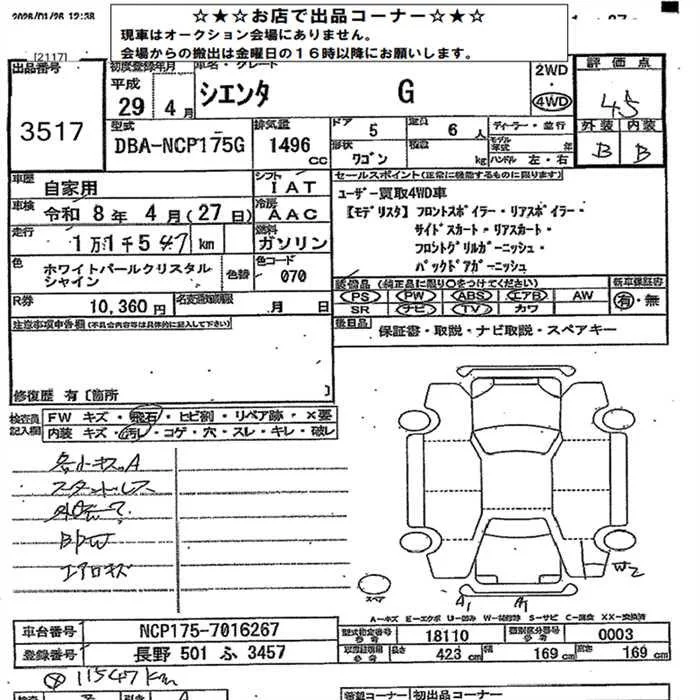 2026/01/26 12:38
☆★☆お店で出品コーナー☆★☆
現車はオークション会場にありません。
会場からの搬出は金曜日の16時以降にお願いします。
[2117]
出品番号
3517
初度登録年月
平成
29年 4月
車名・グレード
シエンタ G
2WD
・
4WD
評価点
4.5
外装 内装
B B
型式
DBA-NCP175G
排気量
1496 cc
ドア 5
定員 6人
形状 ワゴン
積載 kg
ディーラー・並行
モデル年式 年
ハンドル 左・右
車歴 自家用
シフト IAT
車検 令和 8年 4月(27日)
冷房 AAC
走行 1万1千547km
燃料 ガソリン
色 ホワイトパールクリスタル
シャイン
色替
色コード 070
R券 10,360円
名変通知期限 月 日
セールスポイント(正常に機能するものに限ります)
ユーザー買取4WD車
【モデリスタ】フロントスポイラー・リアスポイラー・
サイドスカート・リアスカート・
フロントグリルガーニッシュ・
バックドアガーニッシュ
装備品(純正品に限り○をつけてください)
PS PW ABS エアB AW
SR ナビ TV カワ
新車保証書
有・無
後日品 保証書・取説・ナビ取説・スペアキー
注意事項申告欄(不具合内容等は具体的に記入して下さい)
修復歴 有[箇所 ]
検査員記入欄
FW キズ・飛石・ヒビ割・リペア跡・×要
内装 キズ・汚レ・コゲ・穴・スレ・キレ・破レ
各小キズA
スタッドレス
BPW
エアロキズ
スペア
A1 A1
W2
A-キズ E-エクボ U-凹み W-補修跡 S-サビ C-腐食 XX-交換済
車台番号 NCP175-7016267
登録番号 長野 501 ふ 3457
型式指定番号 18110
類別区分番号 0003
長さ 423cm
幅 169cm
高さ 169cm
11547km
初出品コーナー